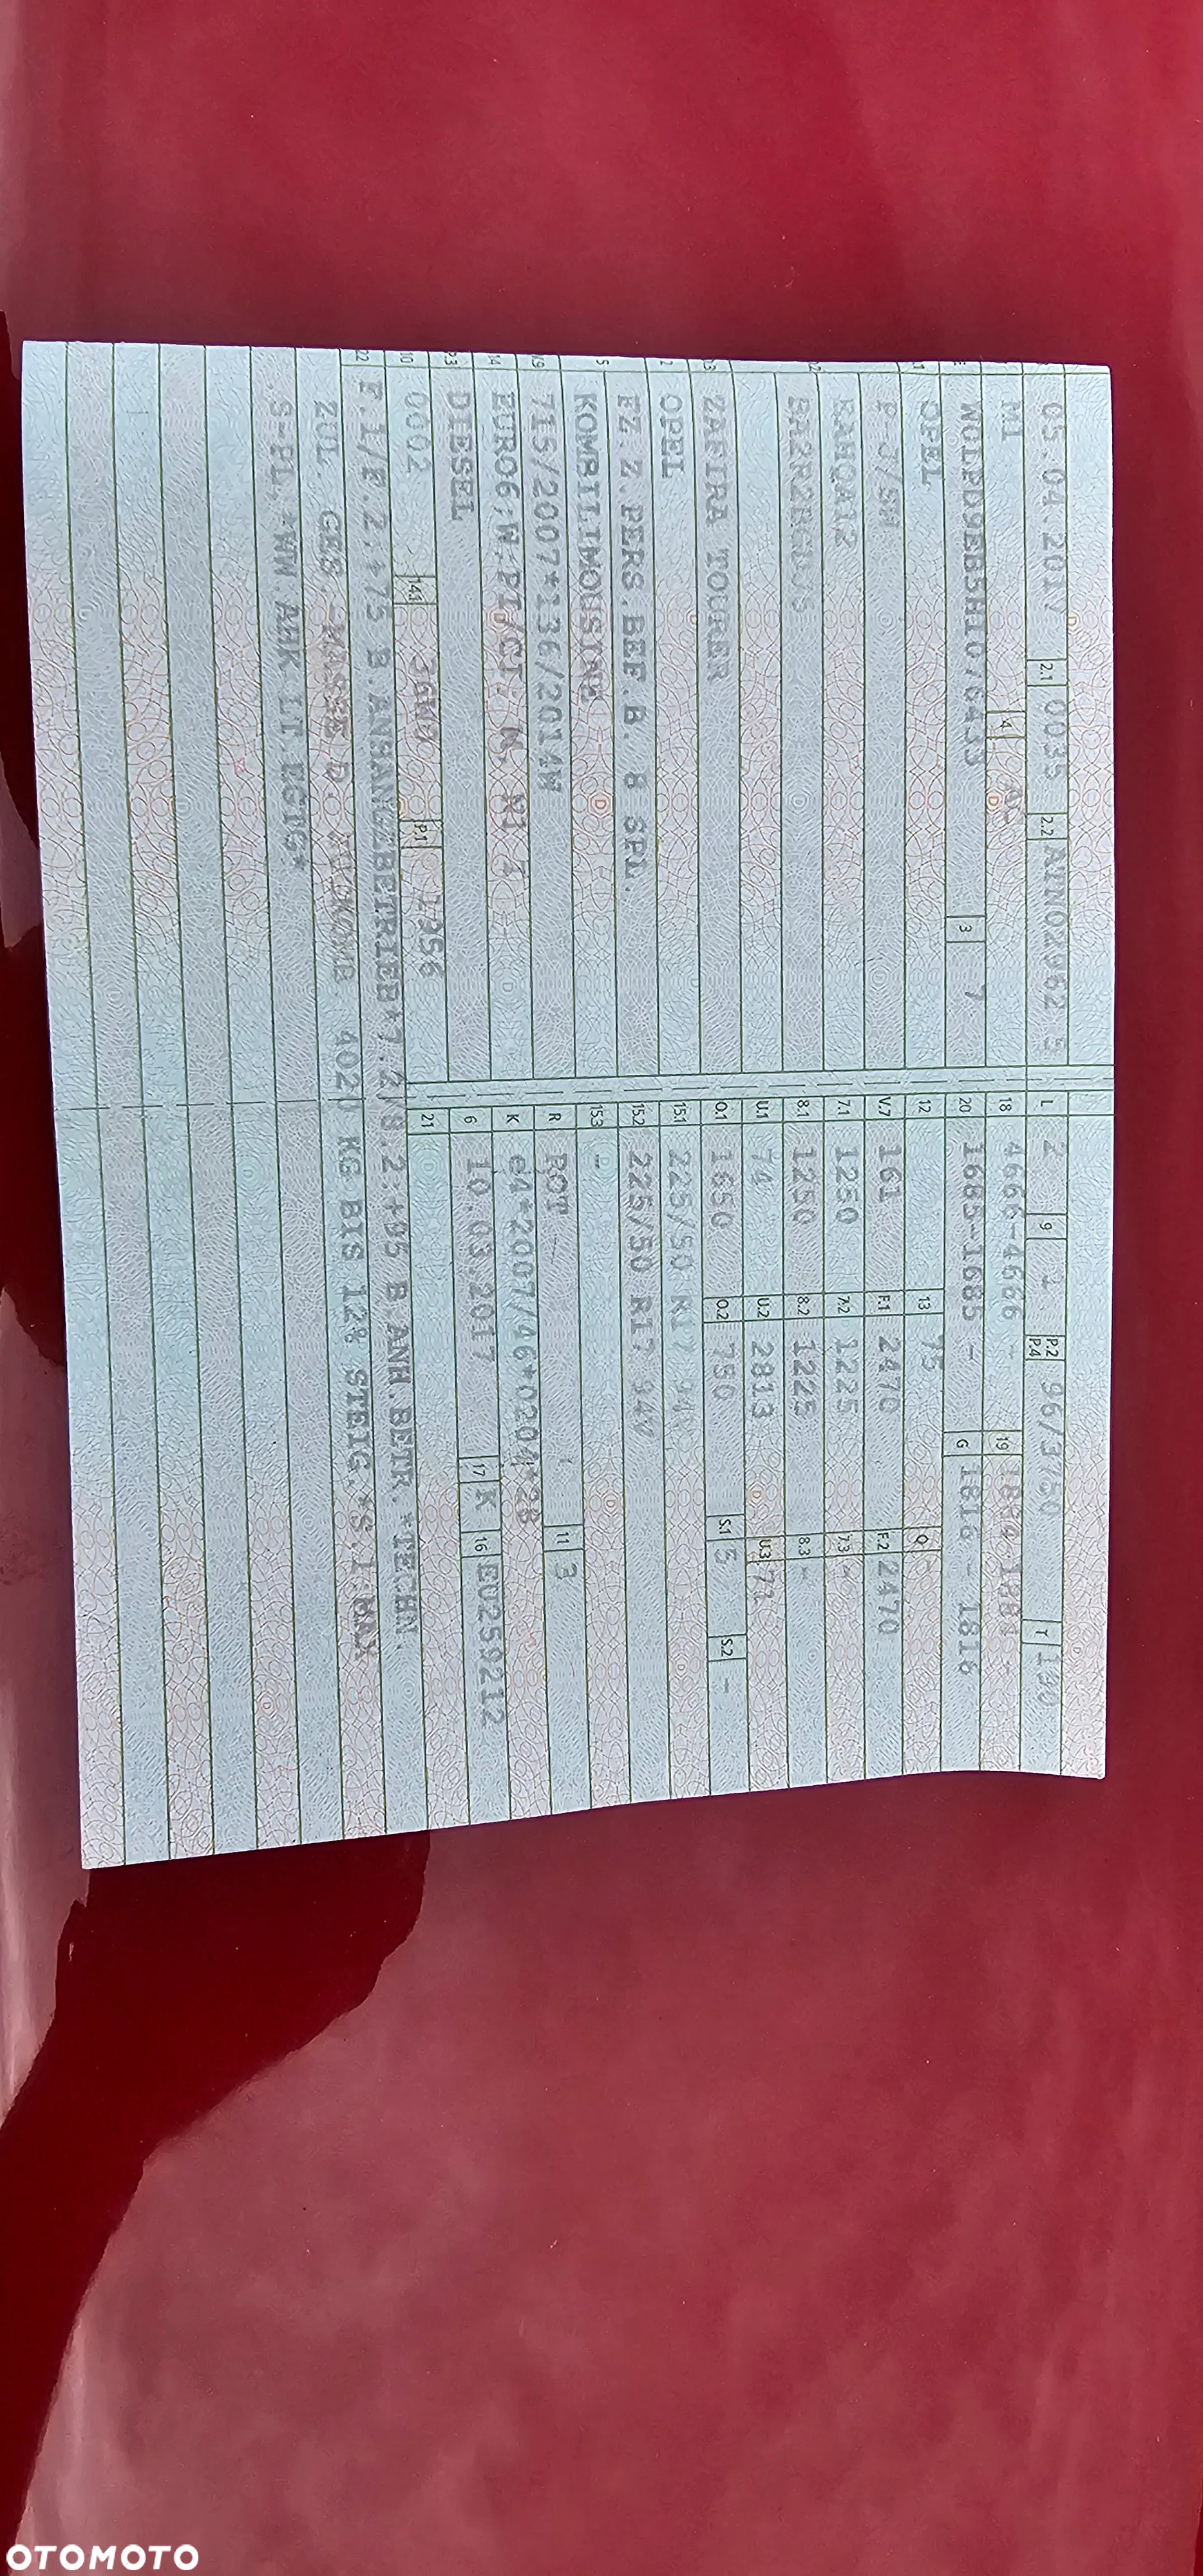 05.04.2017 2.1 0035 2.2 L 2 9 1 P.2 P.4 96/3750 T 190
M1 4 18 4666-4666 - 19
3 7 20 1685-1685 - G 1816 - 1816
OPEL 12 13 75 Q
V.7 161 F.1 2470 F.2 2470
7.1 1250 7.2 1225 7.3 -
8.1 1250 8.2 1225 8.3 -
U.1 74 U.2 2813 U.3 71
ZAFIRA TOURER O.1 1650 O.2 750 S.1 5 S.2 -
OPEL 15.1 225/50 R17 94V
FZ.Z.PERS.BEF.B. 8 SPL. 15.2 225/50 R17 94V
5 KOMBILIMOUSINE 15.3 -
V.9 715/2007*136/2014W R ROT 11 3
14 EURO6;W;PI/CI; M, N1 I K e4*2007/46*0204*28
P.3 DIESEL 6 10.03.2017 17 K 16 EU259212
10 0002 14.1 36W0 P.1 1956 21
22 F.1/F.2:+75 B.ANHAENGEBETRIEB*7.2/8.2:+95 B.ANH.BETR.*TECHN.
ZUL. GES. MASSE D. 4020 KG BIS 12% STEIG.*S.1 MAX
.S-PL.*WW.AHK LT.EGTG*
OTOMOTO